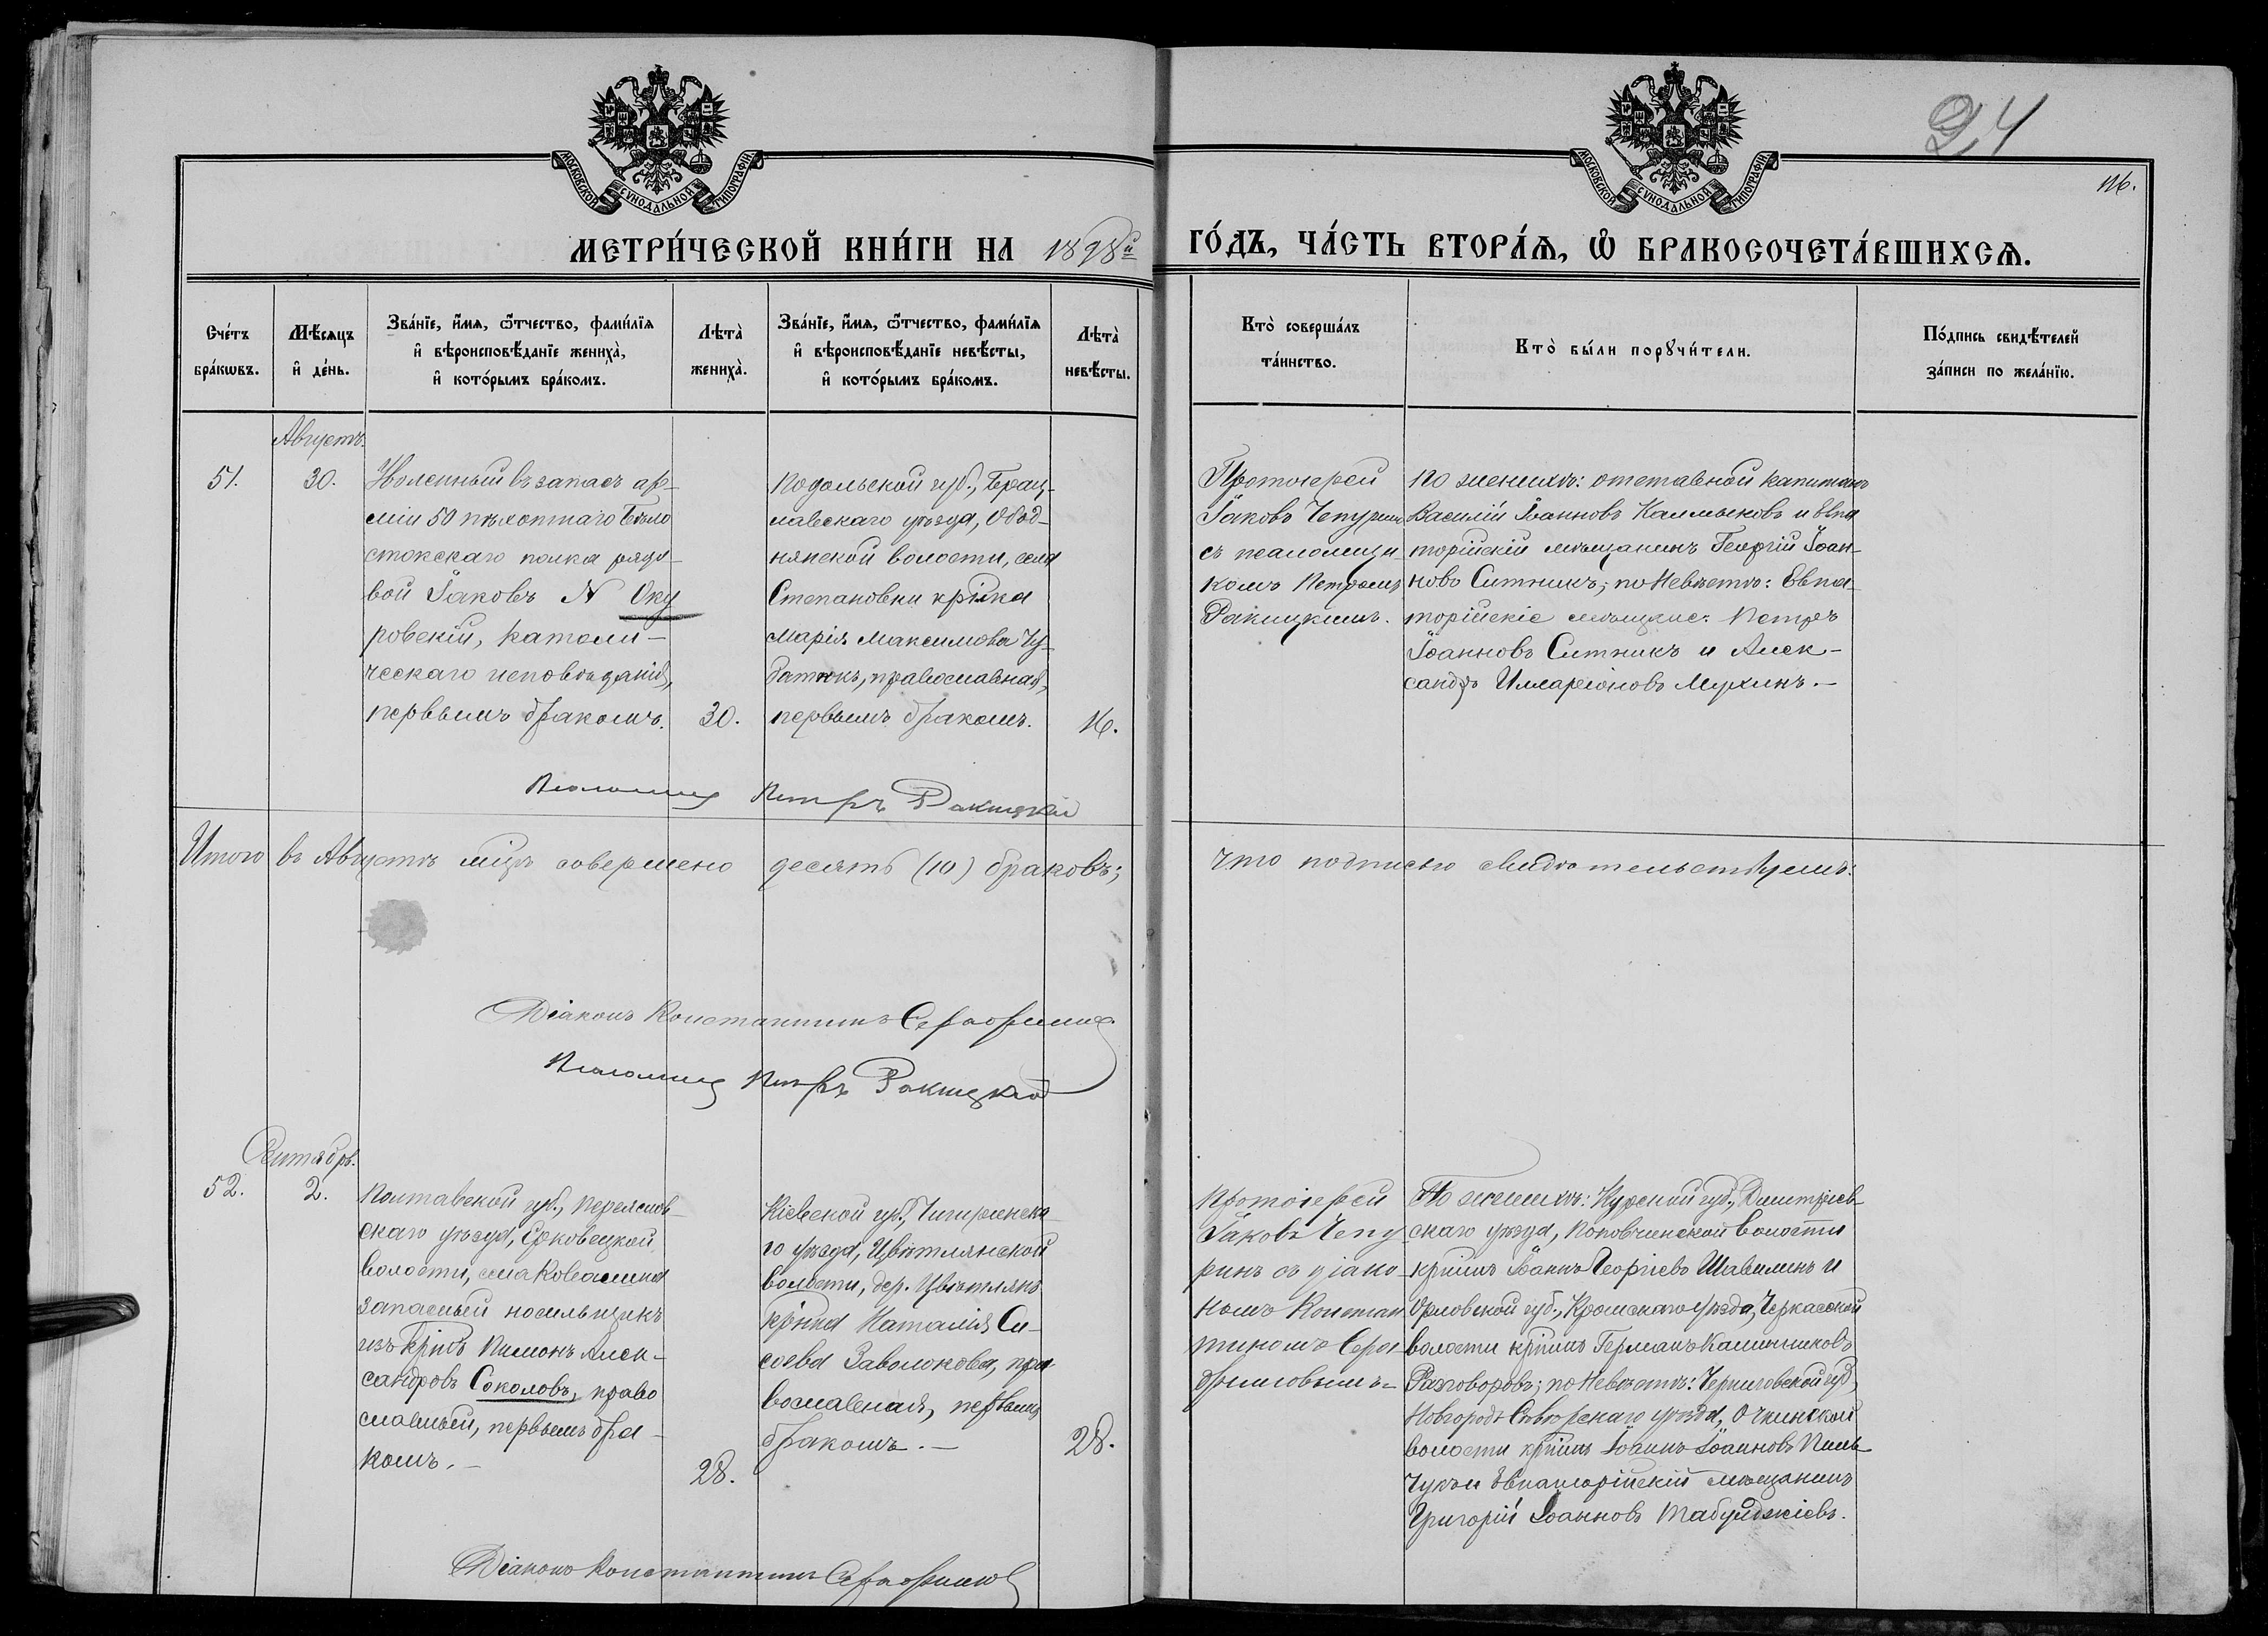 24
МОСКОВСКОЙ СѴНОДАЛЬНОЙ ТИПОГРАФІИ
МОСКОВСКОЙ СѴНОДАЛЬНОЙ ТИПОГРАФІИ
116.
МЕТРИ́ЧЕСКОЙ КНИ́ГИ НА 1898й ГО́ДЪ, ЧА́СТЬ ВТОРА́Ѧ, Ѡ҆ БРАКОСОЧЕТА́ВШИХСѦ.
Сче́тъ
бра́кѡвъ.
Мѣ́сѧцъ
и҆ де́нь.
Зва́нїе, и҆́мѧ, ѻ҆́тчество, фами́лїѧ
и҆ вѣроисповѣ́данїе жениха̀,
и҆ кото́рымъ бра́комъ.
Лѣта̀
жениха̀.
Зва́нїе, и҆́мѧ, ѻ҆́тчество, фами́лїѧ
и҆ вѣроисповѣ́данїе невѣ́сты,
и҆ кото́рымъ бра́комъ.
Лѣта̀
невѣ́сты.
Кто̀ соверша́лъ
та́инство.
Кто̀ бы́ли порꙋчи́тели.
По́дпись свидѣ́телей
за́писи по жела́нїю.
Августъ.
51.
30.
Уволенный въ запасъ ар-
міи 50 пѣхотнаго Бѣло
стокскаго полка рядо-
вой Іаковъ N Оку
ровскій, католи-
ческаго исповѣданія,
первымъ бракомъ.
30.
Подольской губ., Брац-
лавскаго уѣзда, Обод-
нянской волости, села
Степановки кр҃ nка
Марія Максимова Чу-
батюкъ, православная,
первымъ бракомъ.
16.
Протоіерей
Іаковъ Чепуринъ
съ псаломщи-
комъ Петромъ
Ракицкимъ.
По женихѣ: отставной капитанъ
Василій Іоанновъ Калмыковъ и Евпа
торійскій мѣщанинъ Георгій Іоан-
новъ Ситникъ; по Невѣстѣ: Евпа-
торійскіе мѣщане: Петръ
Іоанновъ Ситникъ и Алек-
сандръ Илларіоновъ Мухинъ.-
Псаломщ Петръ Ракицкій
Итого въ Августѣ мцѣ совершено десять (10) браковъ; что подписью свидѣтельствуемъ:
Діаконъ Константинъ Серафимов
Псаломщ Петръ Ракицкій
Сентябрь.
52.
2.
Полтавской губ., Переяслав-
скаго уѣзда, Ерковецкой
волости, села Ковалина
запасный носильщикъ
изъ крнъ Пимонъ Алек-
сандровъ Соколовъ, право
славный, первымъ бра-
комъ.-
28.
Кіевской губ., Чигиринска-
го уѣзда, Цвѣтлянской
волости, дер. Цвѣтлянъ
крнка Наталія Си-
соева Заволокова, пра-
вославная, первымъ
бракомъ.-
28.
Протоіерей
Іаковъ Чепу-
ринъ съ діако-
номъ Констан
тиномъ Сера-
фимовымъ-
По женихѣ: Курской губ., Дмитріев-
скаго уѣзда, Поповкинской волости
крнинъ Іоаннъ Георгіевъ Шавилинъ и
Орловской губ., Кромскаго уѣзда, Черкасской
волости крнинъ Германъ Калинниковъ
Разговоровъ; по Невѣстѣ: Черниговской губ.,
Новгородъ Сѣверскаго уѣзда, Очкинской
волости крнинъ Іоаннъ Іоанновъ Пиль-
чукъ и Евпаторійскій мѣщанинъ
Григорій Іоанновъ Табунджіевъ.
Діаконъ Константинъ Серафимов